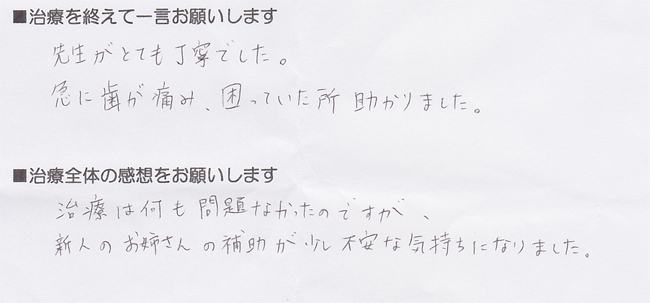 ■治療を終えて一言お願いします
先生がとても丁寧でした。
急に歯が痛み、困っていた所助かりました。
■治療全体の感想をお願いします
治療は何も問題なかったのですが、
新人のお姉さんの補助が少し不安な気持ちになりました。